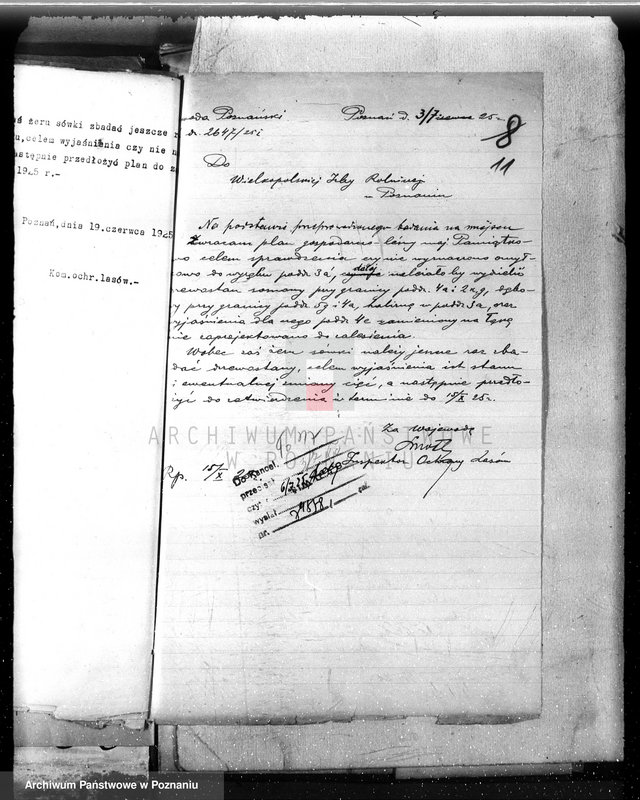 ś żeru sówki zbadać jeszcze r
u, celem wyjaśnienia czy nie n
astępnie przedłożyć plan do z
1925 r.-
Poznań, dnia 19.czerwca 1925
Kom.ochr.lasów.-
oda Poznański Poznań d. 3/7 25
d. 2647/25 i
8
11
Do
Wielkopolskiej Izby Rolniczej
w Poznaniu
Na podstawie przeprowadzonego badania na miejscu
zwracam plan gospodarcz leśny maj Pamiątko
wo celem sprawdzenia czy nie wymazano omył
kowo do wyrębu podd. 3a, dalej należało by wydzielić
drzewostan sosnowy przy granicy podd. 4a i 2 g, dębo
y przy granicy podd. 5g i 4a, w podd. 5a, oraz
wyjaśnienia dla czego podd. 4c zamieniony na łąkę
nie zaprojektowano do zalesienia.
Wobec zaś żeru sówki należy jeszcze raz zba
dać drzewostany, celem wyjaśnienia ich stanu
i ewentualnej zmiany cięć, a następnie przedło
żyć do zatwierdzenia w terminie do 15/X 25 r.
Za Wojewodę
Inspektor Ochrony Lasów
Rp. 15/X 25
Do Kancel.
przepisał
czyt.
wysłał
nr. zał.
ARCHIWUM PAŃSTWOWE
W POZNANIU
Archiwum Państwowe w Poznaniu